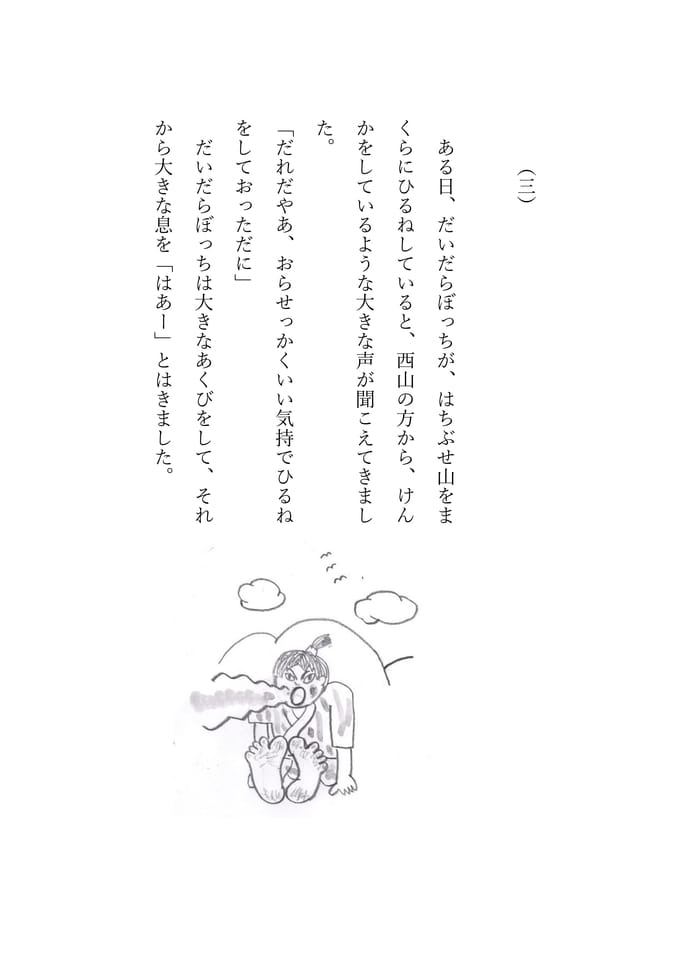 （三）
　ある日、だいだらぼっちが、はちぶせ山をま
くらにひるねしていると、西山の方から、けん
かをしているような大きな声が聞こえてきまし
た。
「だれだやあ、おらせっかくいい気持でひるね
をしておっただに」
　だいだらぼっちは大きなあくびをして、それ
から大きな息を「はあー」とはきました。